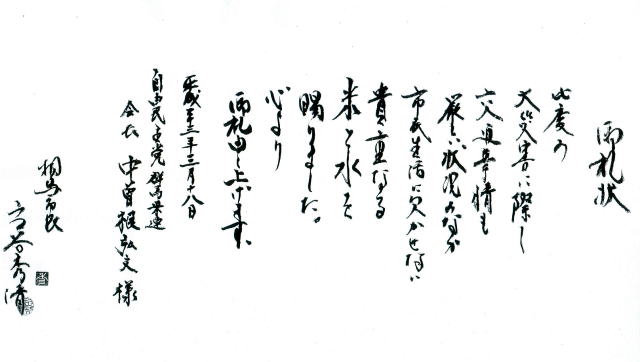 御礼状
此度の
大災害に際し
交通事情も
厳しい状況のなか
市民生活に欠かせない
貴重なる
米と水を
賜りました。
心より
御礼申し上げます。
平成二十三年三月十八日
自由民主党群馬県連
会長 中曽根弘文様
相馬市長
立谷秀清